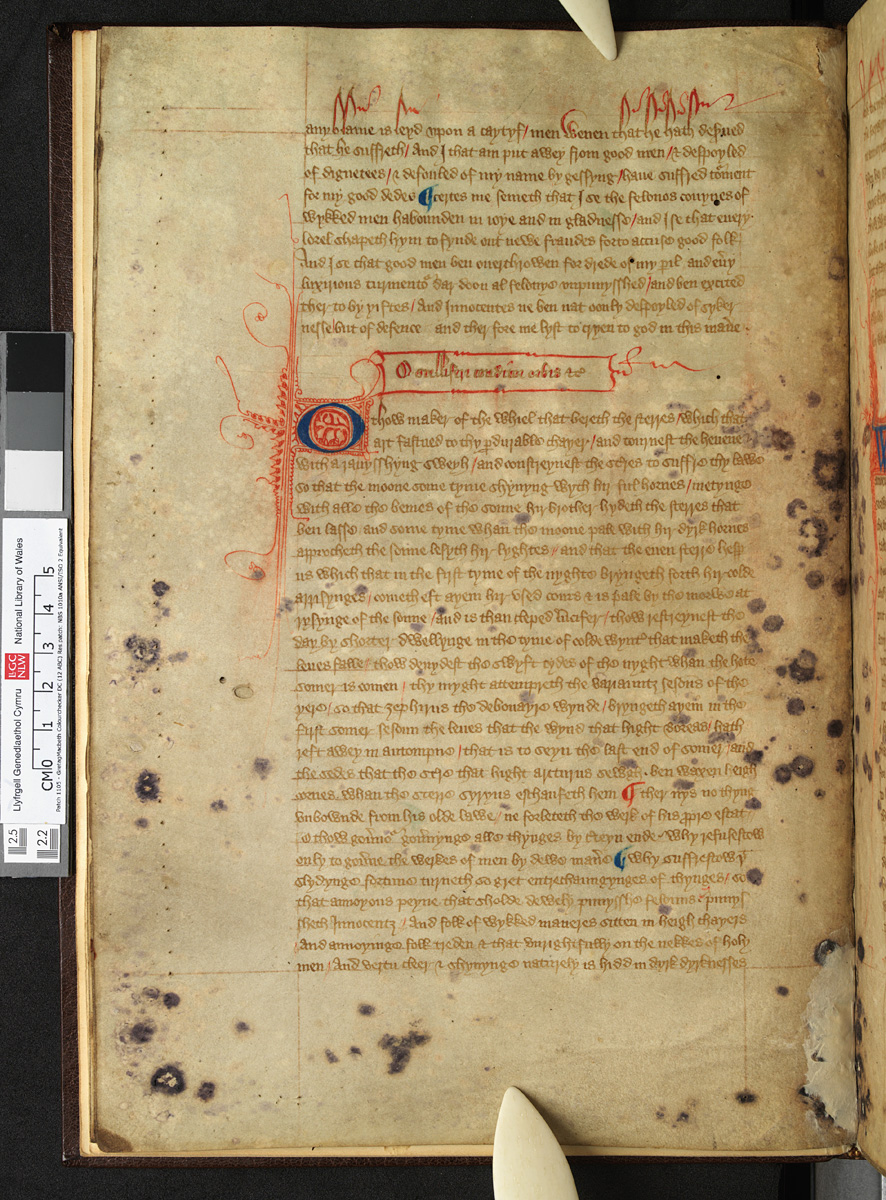 any blame is leyd vpon a caytyf / men wenen that he hath deserued
that he suffreth / And I that am put awey from good men / & despoyled
of dignetees / & defouled of my name by gessyng / haue suffred torment
for my good dedes ¶ Certes me semeth that I se the felonos couynes of
wykked men habounden in ioye and in gladnesse / and I se that euery
lorel shapeth hym to fynde out newe fraudes forto accuse good folk
And I se that good men ben ouerthrowen for drede of my pil and euery
luxurious turmentour dar doon al felonye vnpunysshed / and ben excited
ther to by yiftes / And Innocentes ne ben nat oonly despoyled of syker
nesse but of defence and ther fore me lyst to cryen to god in this manere .
O stelliferi conditor orbis &c
O thow maker of the whiel that bereth the sterres / which that
art fastned to thy perdurable chayer / and tournest the heuene
with a rauysshyng sweyh / and constreynest the sterres to suffre thy lawe
so that the moone some tyme shynyng wyth hir ful hornes / metynge
with alle the bemes of the sonne hir brother hydeth the sterres that
ben lasse and some tyme whan the moone pale with hir dyrk hornes
approcheth the sonne lesyth hir lyghtes / and that the euen sterre hesp
us which that in the first tyme of the nyghte bryngeth forth hir colde
arysynges / cometh eft ayein hir vsed cours & is pale by the morwe at
rysynge of the sonne / and is than cleped lucifer / thow restreynest the
day by shorter dwellynge in the tyme of colde wynter that maketh the
leues falle / thow deuydest the swyft tydes of the nyght whan the hote
somer is comen / thy myght attempreth the variauntz sesons of the
yere / so that zephirus the debonayre wynde / bryngeth ayein in the
first somer sesoun the leues that the wynd that hight boreas / hath
reft awey in autompne / that is to seyn the last end of somer / and
the sedes that the sterre that hight arcturus sewgh . ben waxen heigh
cornes whan the sterre Syryus eschaufeth hem ¶ ther nys no thyng
vnbownde from his olde lawe / ne forleteth the werk of his propre estat
O thow gouernour gouernynge alle thynges by certeyn ende . why refusestow
only to gouerne the werkes of men by dewe manere ¶ why suffrestow þat
slydynge fortune turneth so gret entrechaungynges of thynges / so
that annoyous peyne that sholde dewely punysshe felouns punys
sheth Innocentz / And folk of wykked maneres sitten in heigh chayers
And annoyinge folk treden & that vnrightfully on the nekkes of holy
men / And vertu cleer & shynynge naturely is hidd in dyrk dyrknesses
Llyfrgell Genedlaethol Cymru LLGC NLW National Library of Wales
CM 0 1 2 3 4 5
2.5
2.2